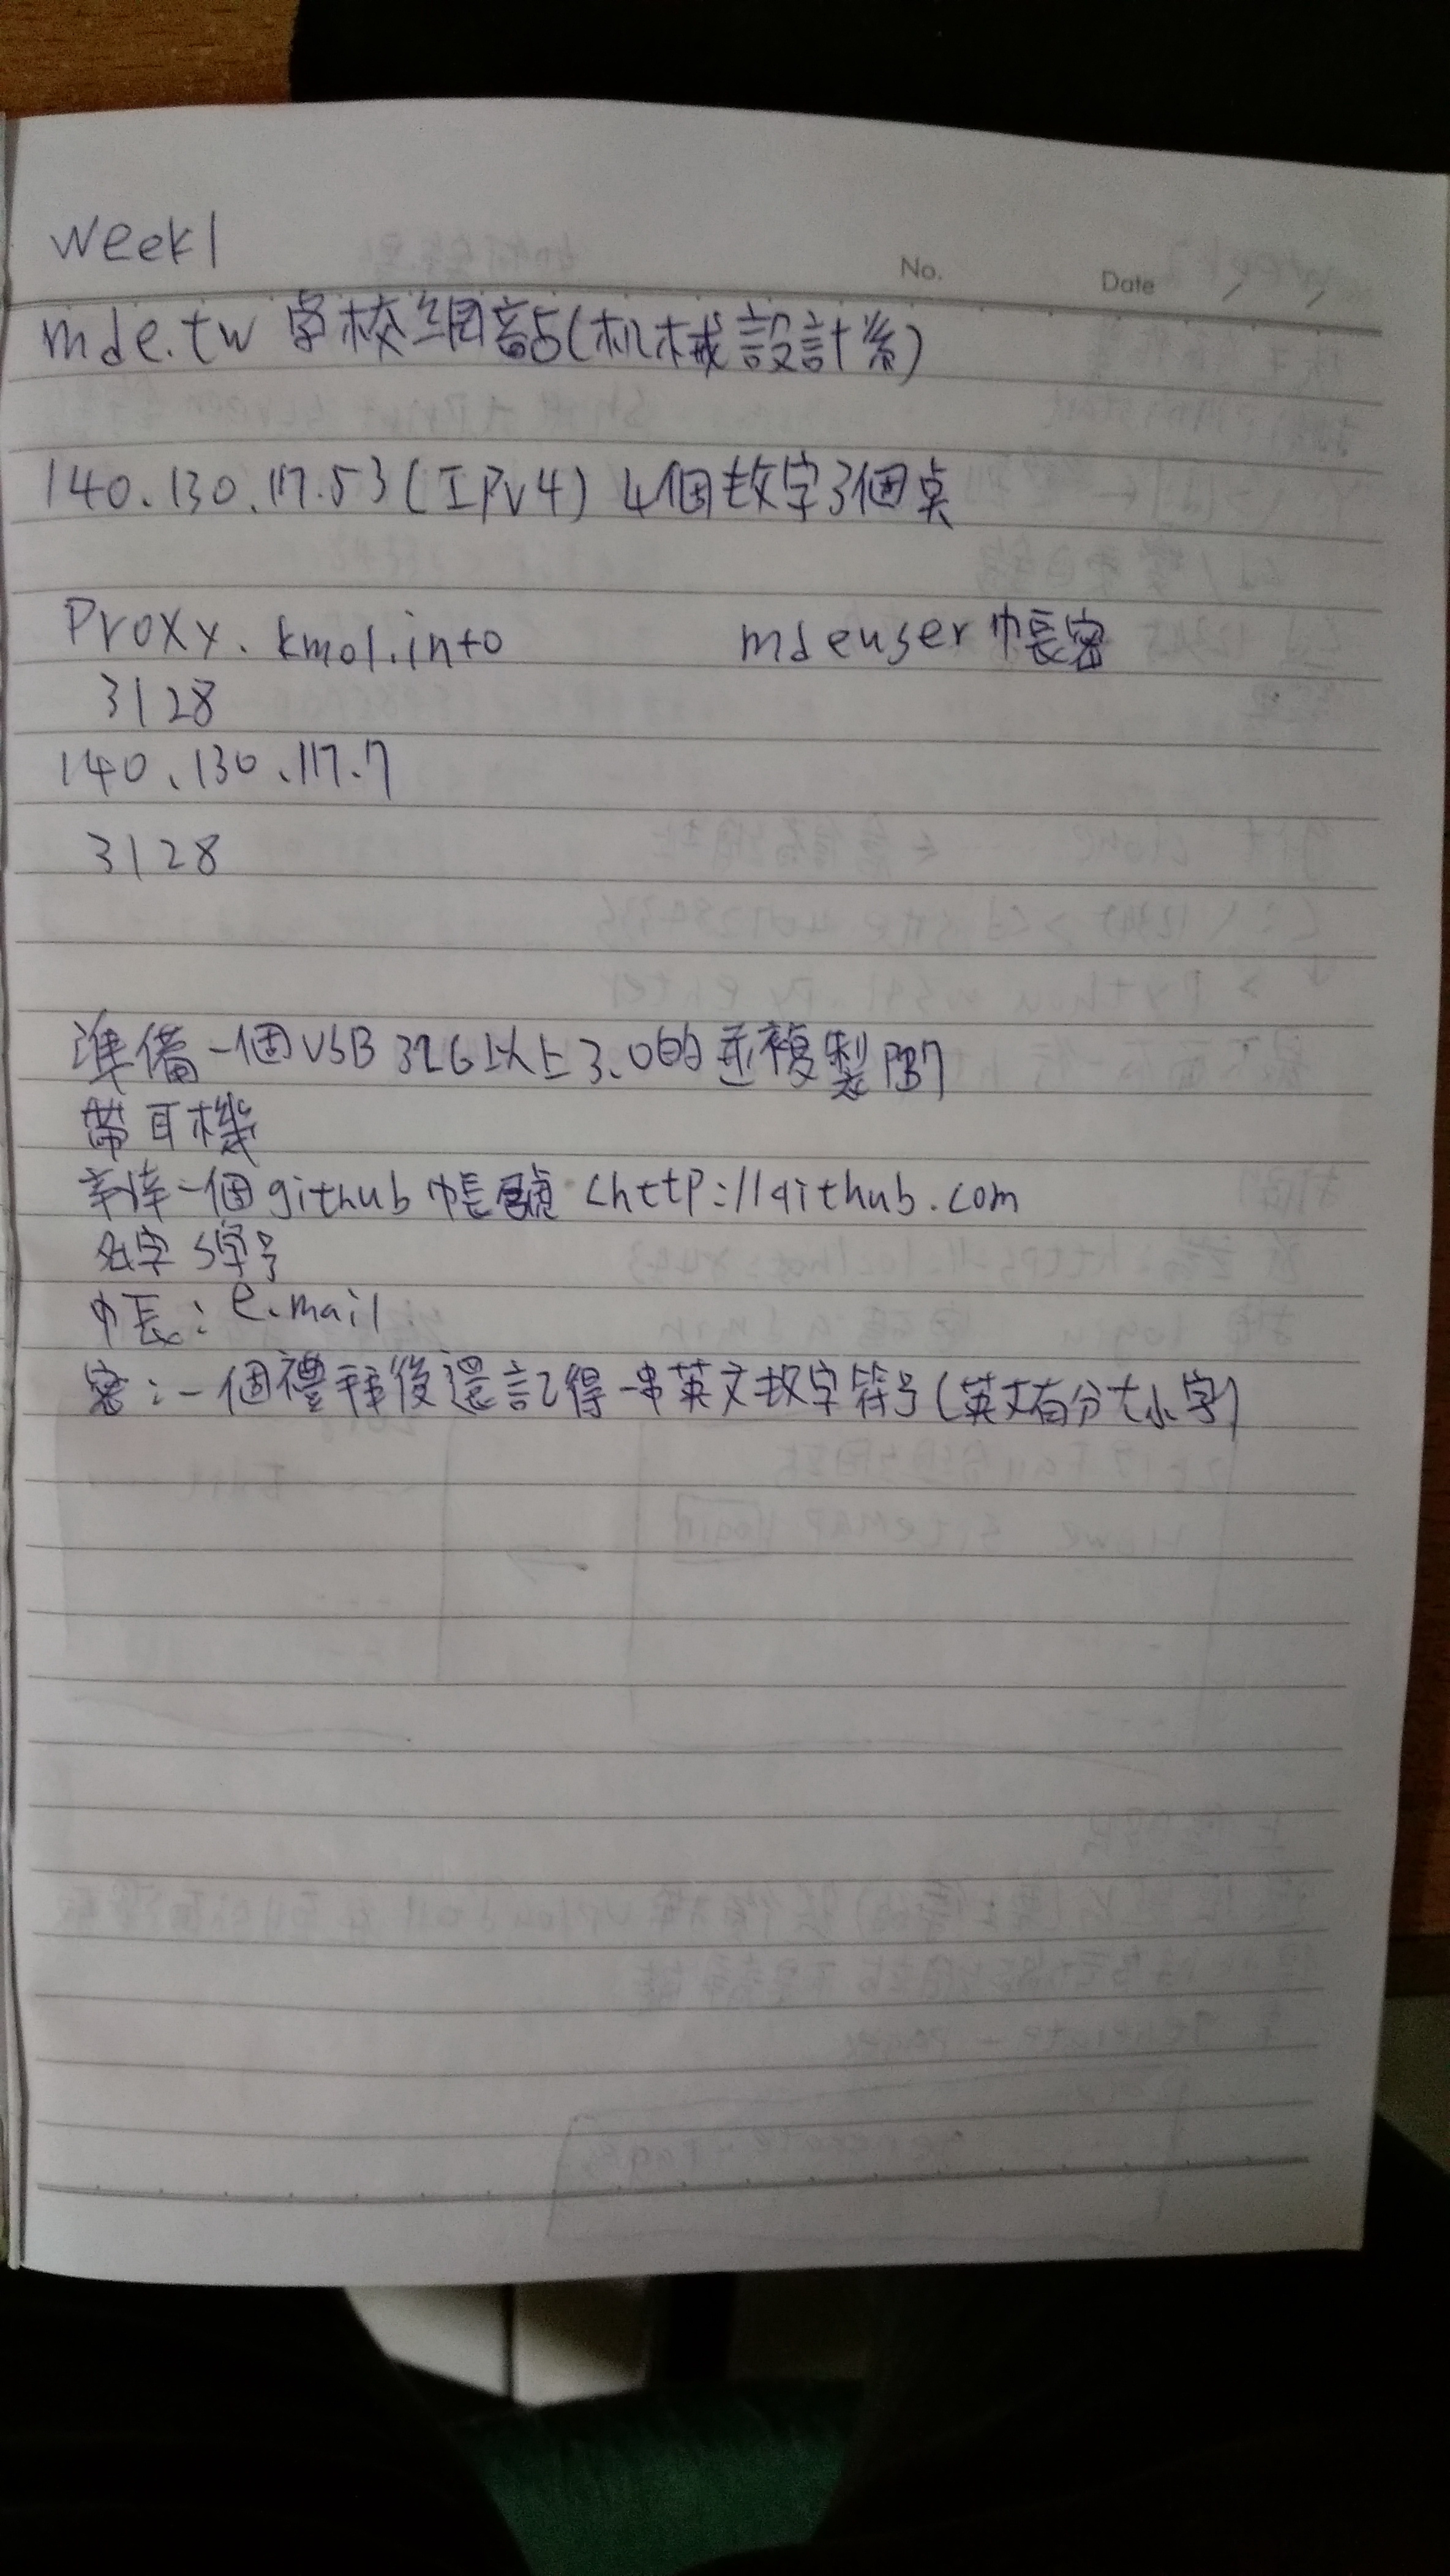 week1
No. Date / /
mde.tw 學校網站(机械設計系)
140.130.117.53(IPv4) 4個數字3個点
Proxy.kmol.info mdeuser 帳密
3128
140.130.117.7
3128
準備一個USB 32G以上3.0的 並複製PB7
帶耳機
準一個github 帳號 <http://github.com
名字 S學号
帳: e.mail
密:一個禮拜後還記得一串英文数字符号(英文有分大小字)